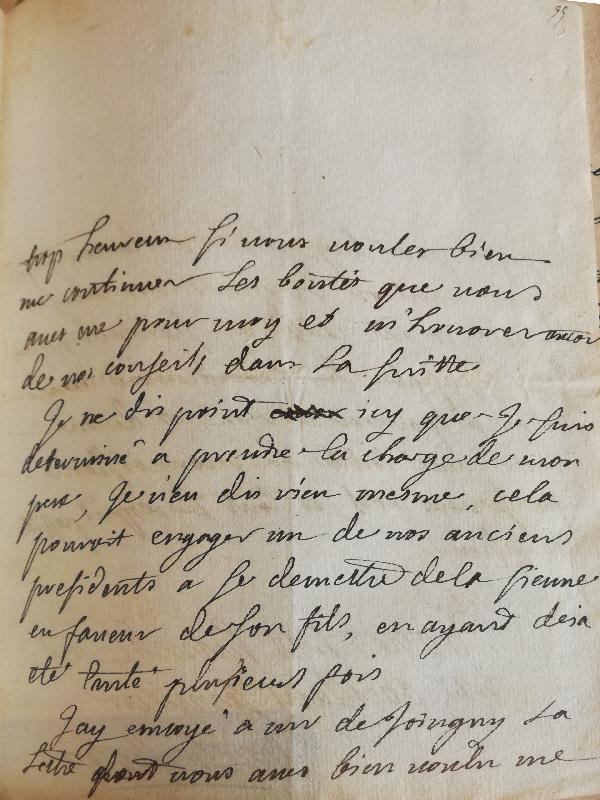 99
trop heureux si vous voulez bien
me continuer Les bontés que vous
avez eue pour moy et m'honorer encor
de vos conseils dans La suitte
Je ne dis point icy que Je suis
determiné a prendre la charge de mon
pere, Je n'en dis rien mesme, cela
pouroit engager un de nos anciens
presidents a se demettre de la sienne
en faveur de son fils, en ayant deja
eté tenté plusieurs fois
J'ay envoyé a mr de Joingny La
Lettre dont vous avez bien voulu me